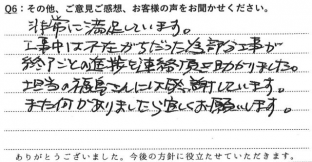 Q6：その他、ご意見ご感想、お客様の声をお聞かせください。
非常に満足しています。
工事中は不在がちだった為部分工事が
終了ごとの進捗を連絡頂き助かりました。
担当の福島さんには感謝しています。
また何かありましたら宜しくお願いします。
ありがとうございました。今後の方針に役立たせていただきます。